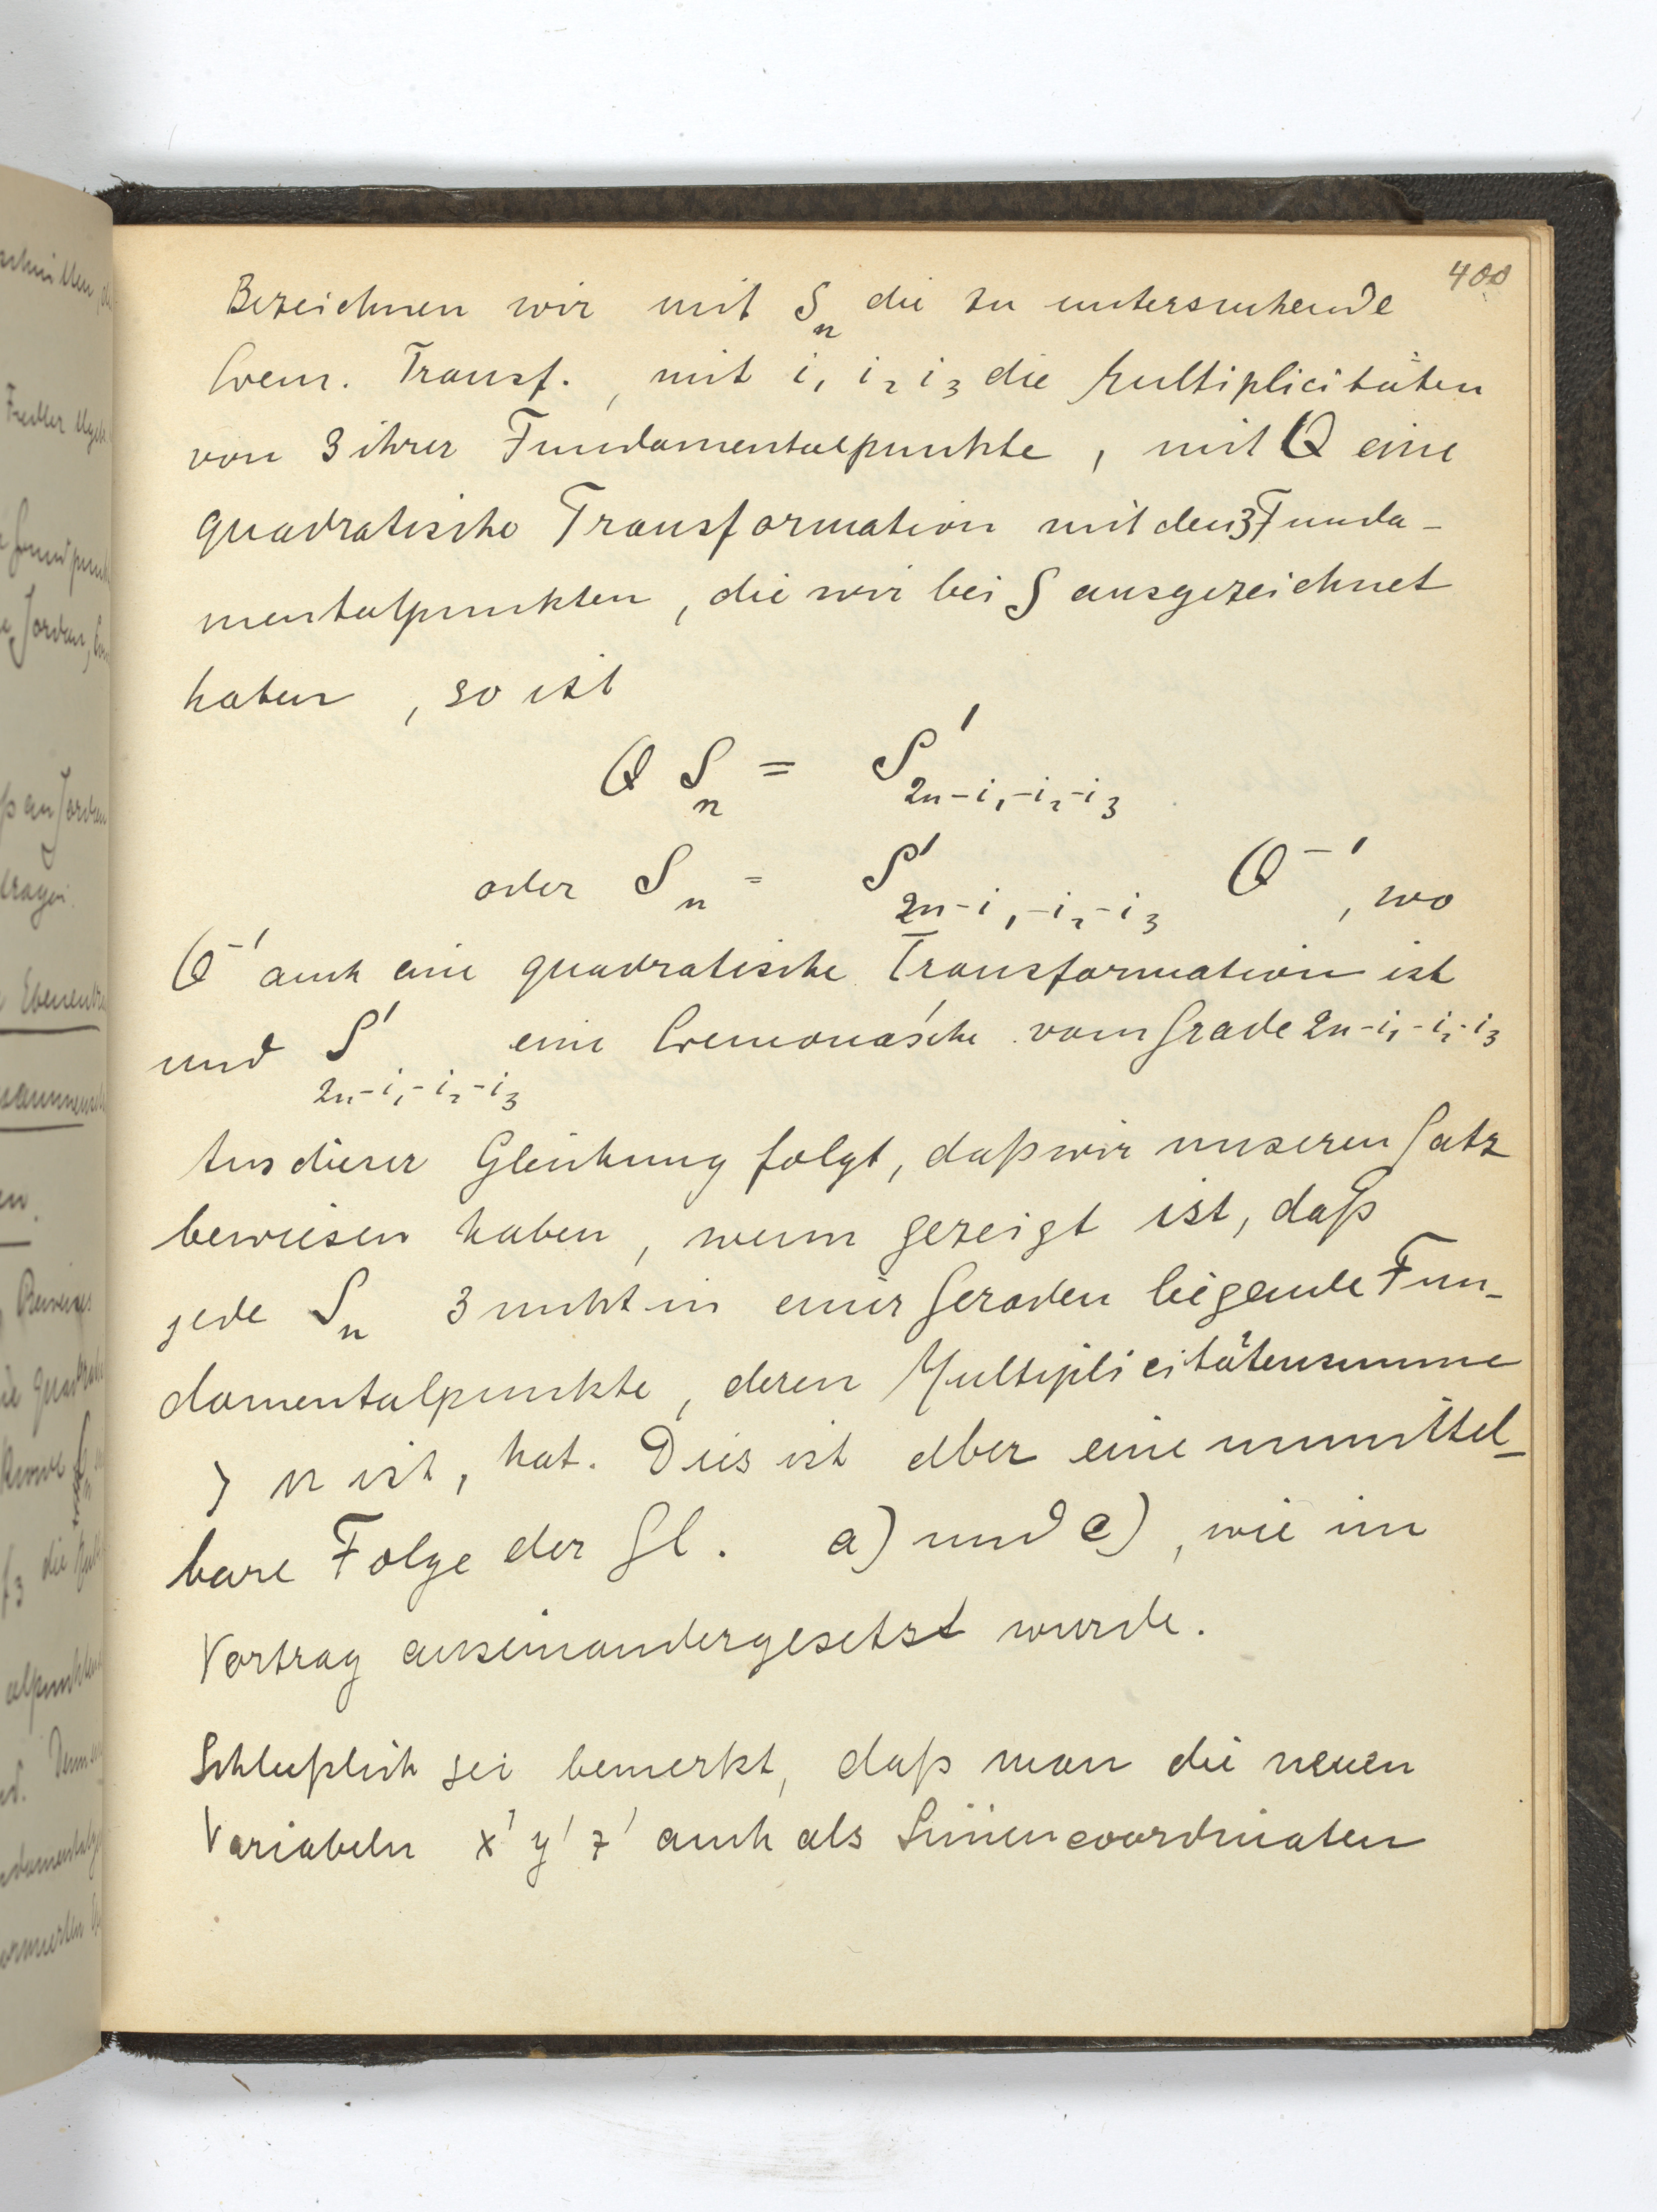 400
Bezeichnen wir mit S_n die zu untersuchende
Crem. Transf., mit i_1 i_2 i_3 die Multiplicitäten
von 3 ihrer Fundamentalpunkte, mit Q eine
quadratische Transformation mit den 3 Funda-
mentalpunkten, die wir bei S ausgezeichnet
haben, so ist
Q S_n = S'_{2n-i_1-i_2-i_3}
oder S_n = S'_{2n-i_1-i_2-i_3} Q^{-1}, wo
Q^{-1} auch eine quadratische Transformation ist
und S'_{2n-i_1-i_2-i_3} eine Cremona'sche vom Grade 2n-i_1-i_2-i_3
Aus dieser Gleichung folgt, daß wir unseren Satz
bewiesen haben, wenn gezeigt ist, daß
jede S_n 3 nicht in einer Geraden liegende Fun-
damentalpunkte, deren Multiplicitätensumme
> n ist, hat. Dies ist aber eine unmittel-
bare Folge der Gl. a) und c), wie im
Vortrag auseinandergesetzt wurde.
Schließlich sei bemerkt, daß man die neuen
Variabeln x' y' z' auch als Liniencoordinaten